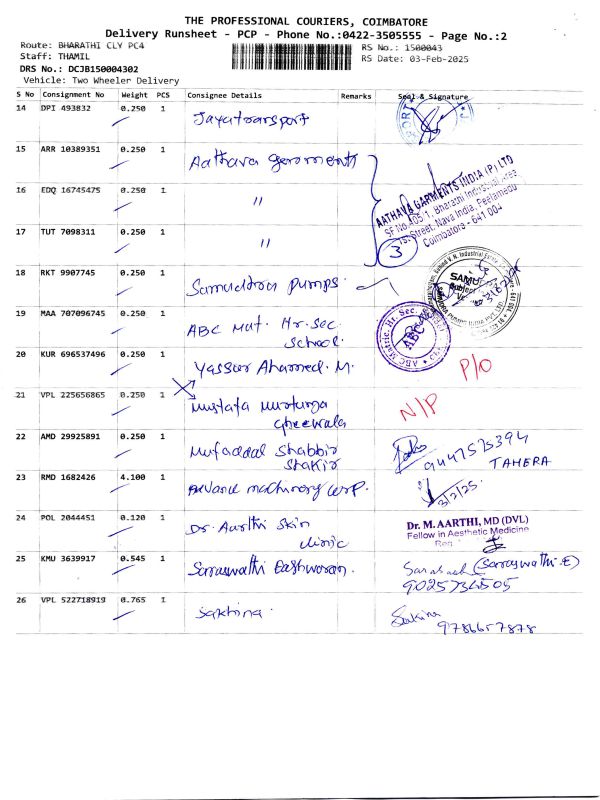 THE PROFESSIONAL COURIERS, COIMBATORE
Delivery Runsheet - PCP - Phone No.:0422-3505555 - Page No.:2
Route: BHARATHI CLY PC4
RS No.: 1500043
Staff: THAMIL
RS Date: 03-Feb-2025
DRS No.: DCJB150004302
Vehicle: Two Wheeler Delivery
S No Consignment No Weight PCS Consignee Details Remarks Seal & Signature
14 DPI 493832 0.250 1 Jayatransport
15 ARR 10389351 0.250 1 Aathava garments
AATHAVA GARMENTS INDIA (P) LTD
SF No. 405/1, Bharathi Industrial Area
Street, Nava India, Peelamedu
Coimbatore - 641 004
3
16 EDQ 16745475 0.250 1 "
17 TUT 7098311 0.250 1 "
18 RKT 9907745 0.250 1 Samudhra pumps.
19 MAA 707096745 0.250 1 ABC Mat. Hr. Sec.
School.
ABC Matric. Hr. Sec.
ABC
20 KUR 696537496 0.250 1 Yasser Ahamed. M.
P/O
21 VPL 225656865 0.250 1 Mustafa Murtunga
Gheewala
N/P
22 AMD 29925891 0.250 1 Mufaddal Shabbir
Shakir
9447575394
TAHERA
23 RMD 1682426 4.100 1 Advance machinery corp.
3/2/25.
24 POL 2044451 0.120 1 Dr. Aarthi Skin
clinic
Dr. M. AARTHI, MD (DVL)
Fellow in Aesthetic Medicine
25 KMU 3639917 0.545 1 Saraswathi Eashwaran.
(Saraswathi.E)
9025734505
26 VPL 522718919 0.765 1 Sakhina.
Sakina
9786657878